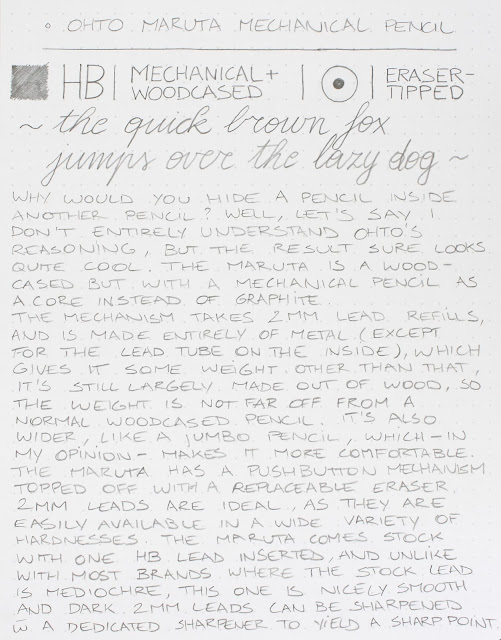 OHTO MARUTA MECHANICAL PENCIL
HB | MECHANICAL + WOODCASED | ERASER-TIPPED
~ the quick brown fox
jumps over the lazy dog ~
WHY WOULD YOU HIDE A PENCIL INSIDE
ANOTHER PENCIL? WELL, LET'S SAY I
DON'T ENTIRELY UNDERSTAND OHTO'S
REASONING, BUT THE RESULT SURE LOOKS
QUITE COOL. THE MARUTA IS A WOOD-
CASED BUT WITH A MECHANICAL PENCIL AS
A CORE INSTEAD OF GRAPHITE.
THE MECHANISM TAKES 2MM LEAD REFILLS,
AND IS MADE ENTIRELY OF METAL (EXCEPT
FOR THE LEAD TUBE ON THE INSIDE), WHICH
GIVES IT SOME WEIGHT. OTHER THAN THAT,
IT'S STILL LARGELY MADE OUT OF WOOD, SO
THE WEIGHT IS NOT FAR OFF FROM A
NORMAL WOODCASED PENCIL. IT'S ALSO
WIDER, LIKE A JUMBO PENCIL, WHICH - IN
MY OPINION - MAKES IT MORE COMFORTABLE.
THE MARUTA HAS A PUSHBUTTON MECHANISM
TOPPED OFF WITH A REPLACEABLE ERASER.
2MM LEADS ARE IDEAL, AS THEY ARE
EASILY AVAILABLE IN A WIDE VARIETY OF
HARDNESSES. THE MARUTA COMES STOCK
WITH ONE HB LEAD INSERTED, AND UNLIKE
WITH MOST BRANDS WHERE THE STOCK LEAD
IS MEDIOCRE, THIS ONE IS NICELY SMOOTH
AND DARK. 2MM LEADS CAN BE SHARPENED
W A DEDICATED SHARPENER TO YIELD A SHARP POINT.